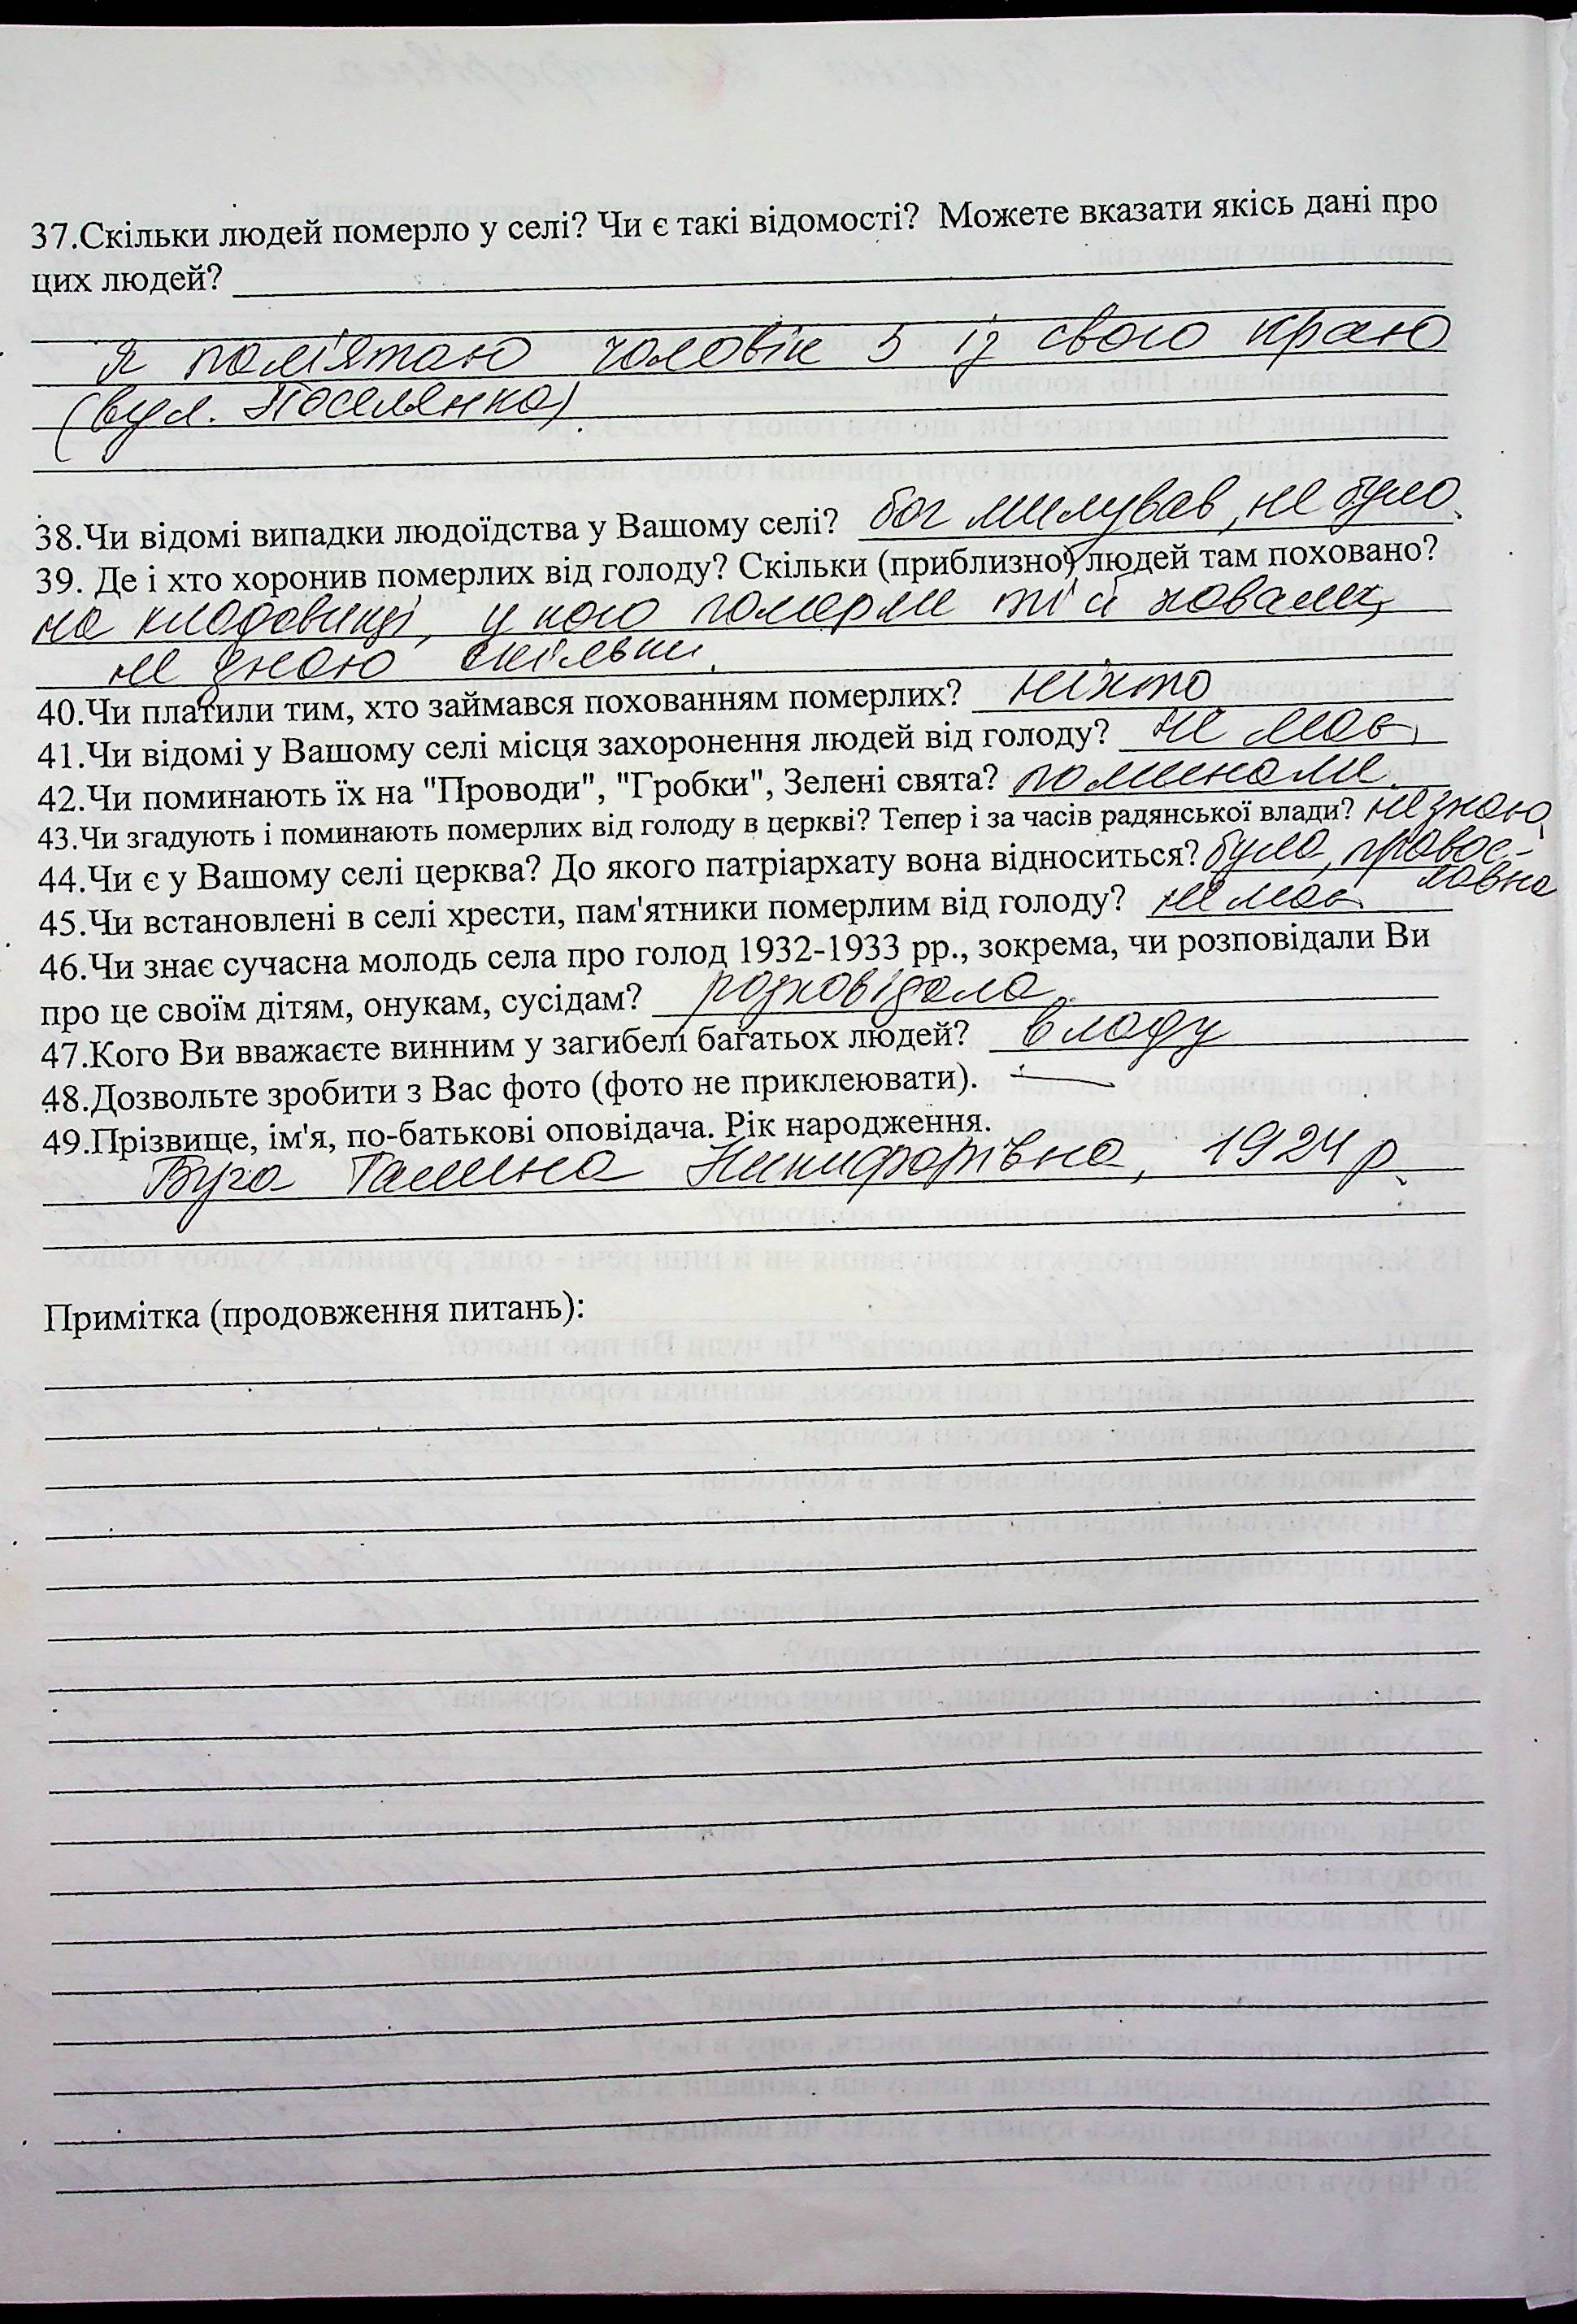 37.Скільки людей померло у селі? Чи є такі відомості? Можете вказати якісь дані про
цих людей?
я пам'ятаю чоловік 5 із свого краю
(вул. Поселянка).
38.Чи відомі випадки людоїдства у Вашому селі? бог милував, не було.
39. Де і хто хоронив померлих від голоду? Скільки (приблизно) людей там поховано?
на кладовищі, у кого померли ті й ховали,
не знаю скільки.
40.Чи платили тим, хто займався похованням померлих? ніхто
41.Чи відомі у Вашому селі місця захоронення людей від голоду? не має.
42.Чи поминають їх на "Проводи", "Гробки", Зелені свята? поминали.
43.Чи згадують і поминають померлих від голоду в церкві? Тепер і за часів радянської влади? не знаю.
44.Чи є у Вашому селі церква? До якого патріархату вона відноситься? була, правос-
лавна
45.Чи встановлені в селі хрести, пам'ятники померлим від голоду? не має.
46.Чи знає сучасна молодь села про голод 1932-1933 рр., зокрема, чи розповідали Ви
про це своїм дітям, онукам, сусідам? розповідала.
47.Кого Ви вважаєте винним у загибелі багатьох людей? владу
48.Дозвольте зробити з Вас фото (фото не приклеювати). —
49.Прізвище, ім'я, по-батькові оповідача. Рік народження.
Галина Никифорівна, 1924 р.
Примітка (продовження питань):